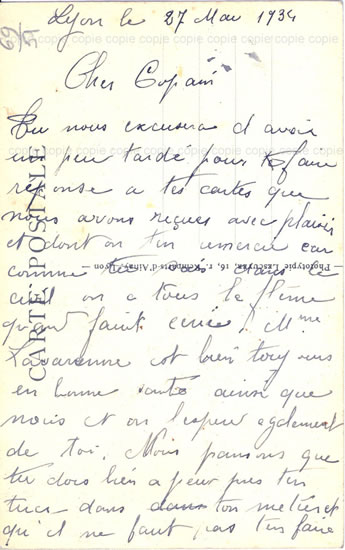 Lyon le 27 Mai 1934
69
59
copie copie copie copie copie copie copie copie
Cher Copain
Tu nous excusera d avoir
un peu tardé pour te faire
réponse a tes cartes que
nous avons reçues avec plaisir
et dont on t'en remercie car
comme tu sais dans le
civil on a tous la flème
quand faut ecrire. Mme
Lavarenne est bien toujours
en bonne santé ainsi que
nous et on l'espere egalement
de toi. Nous pensons que
tu dois bien a peu pres t'en
tirer dans ton metier et
qu'il ne faut pas t'en faire
CARTE POSTALE
Phototypie Lescuyer, 16, r. Remparts-d'Ainay, Lyon